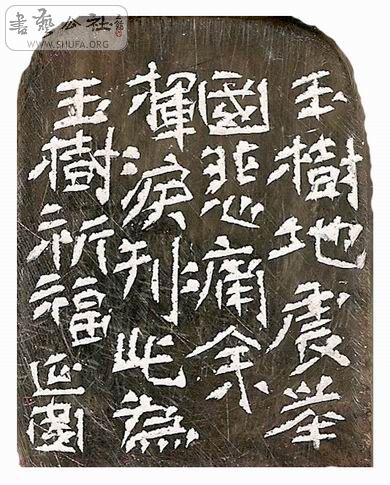 書藝公社
WWW.SHUFA.ORG
玉樹地震举
國悲痛余
揮淚刊此為
玉樹祈福